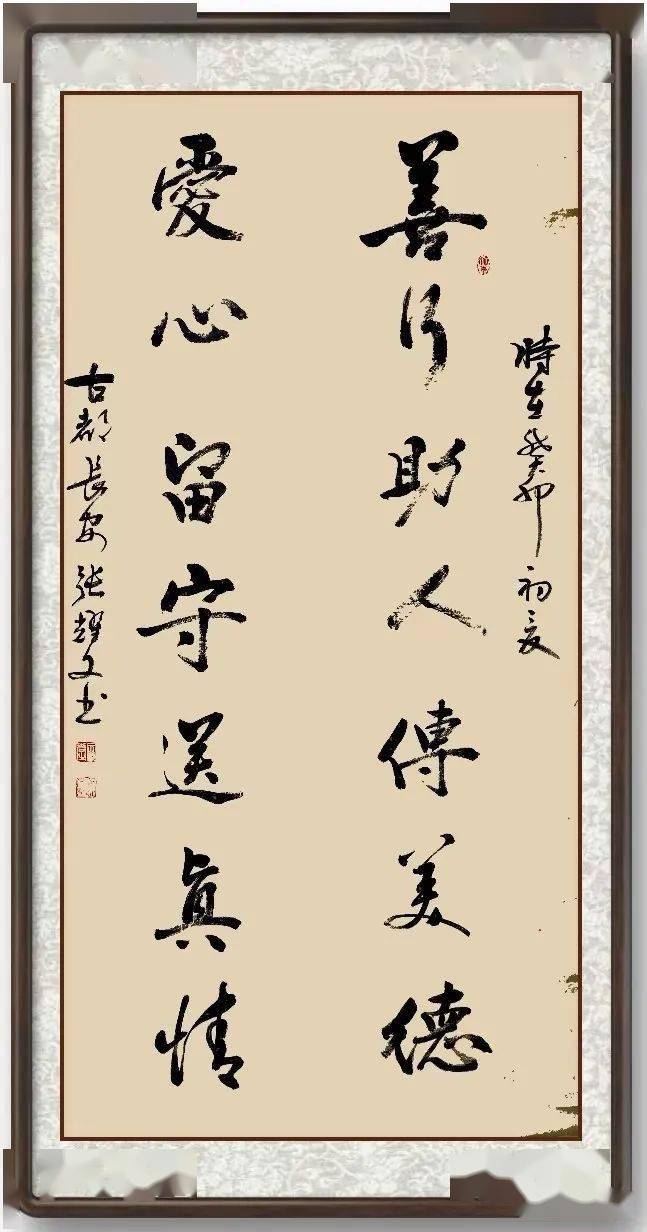 時在癸卯初夏
善行助人傳美德
愛心留守送真情
古都長安張耀文书